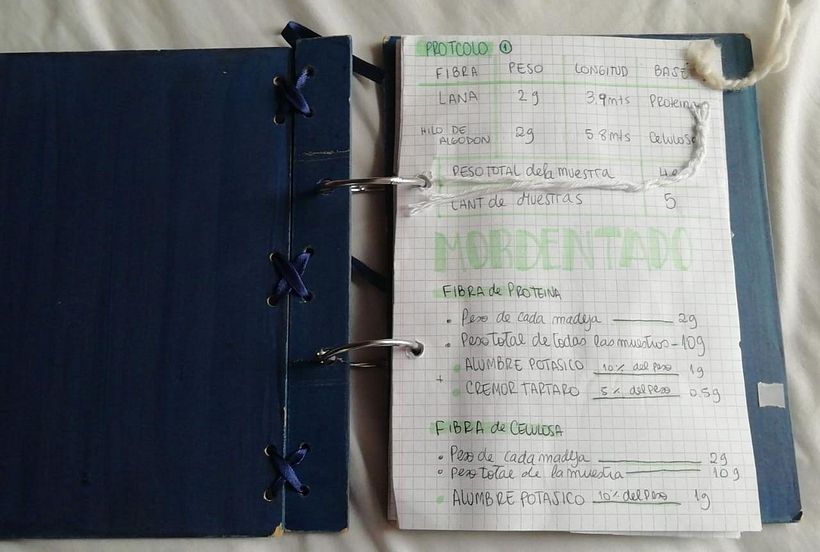 PROTCOLO 1
FIBRA PESO LONGITUD BASE
LANA 2g 3.9mts Proteina
HILO DE ALGODON 2g 5.8mts Celulosa
PESO TOTAL de la MUESTRA
CANT de MUESTRAS 5
MORDENTADO
FIBRA de PROTEINA
• Peso de cada madeja 2g
• Peso total de todas las muestras - 10g
• ALUMBRE POTASICO 10% del peso 1g
+
• CREMOR TARTARO 5% del peso 0.5g
FIBRA de CELULOSA
• Peso de cada madeja 2g
• Peso total de la muestra 10g
• ALUMBRE POTASICO 10% del Peso 1g